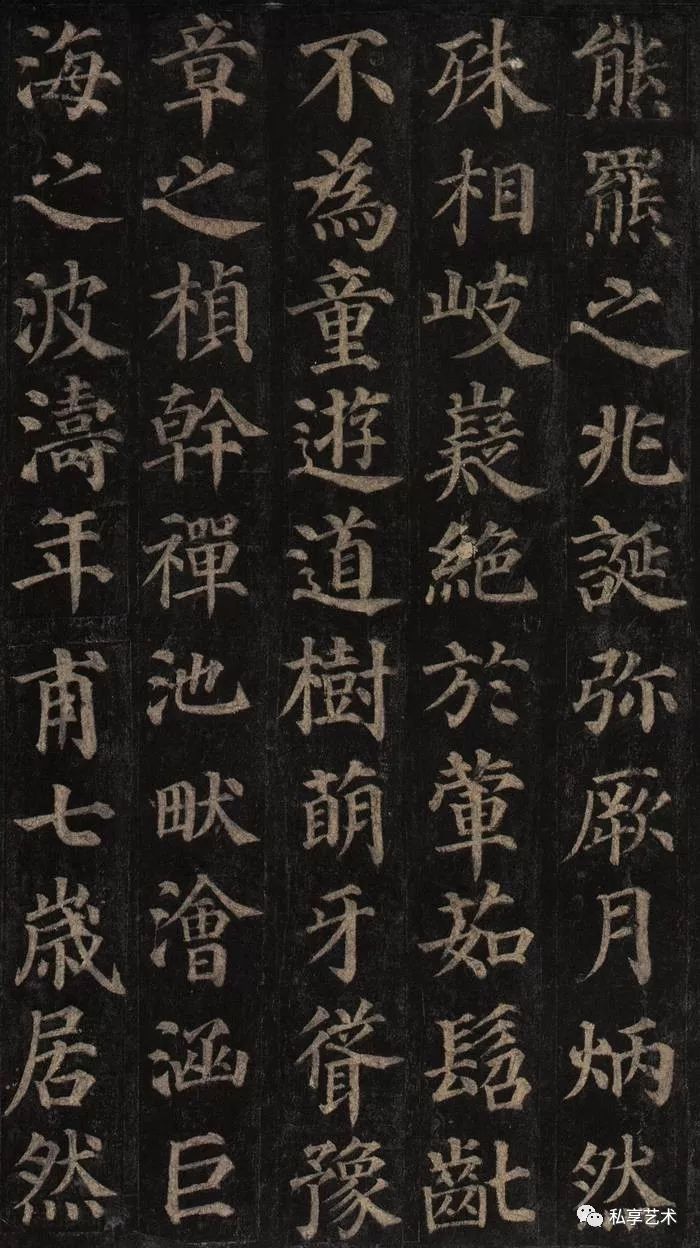 熊羆之兆誕弥厥月炳然
殊相岐嶷絶於葷茹髫齔
不為童遊道樹萌牙聳豫
章之楨幹禪池畎澮涵巨
海之波濤年甫七歳居然
私享艺术